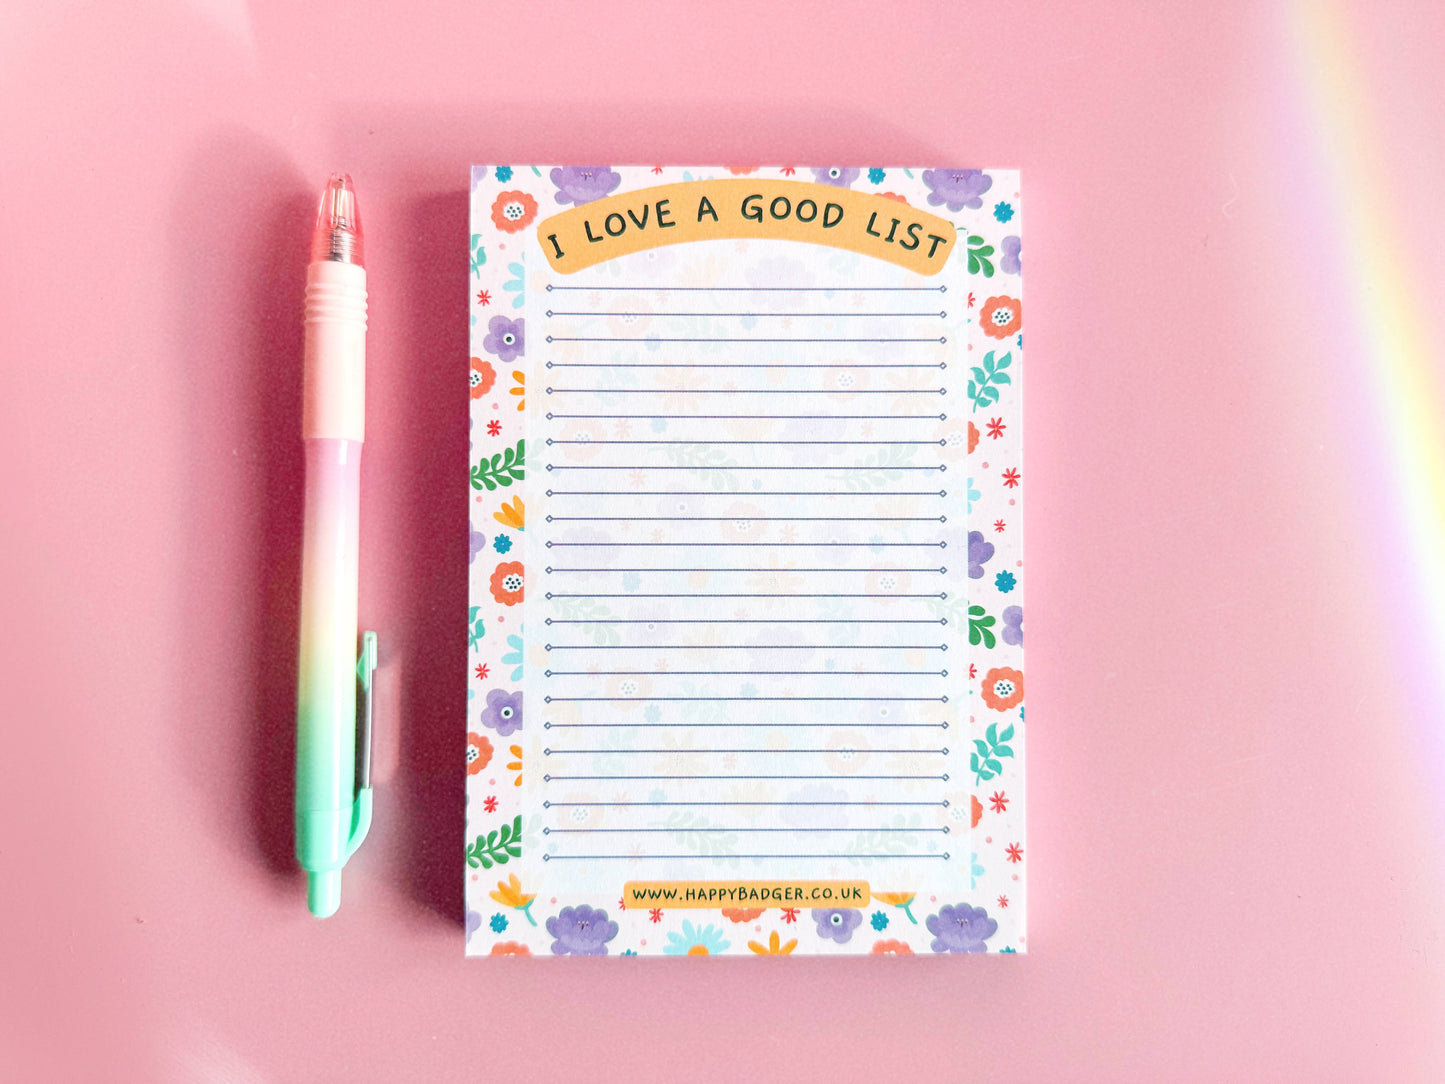 I LOVE A GOOD LIST
WWW.HAPPYBADGER.CO.UK